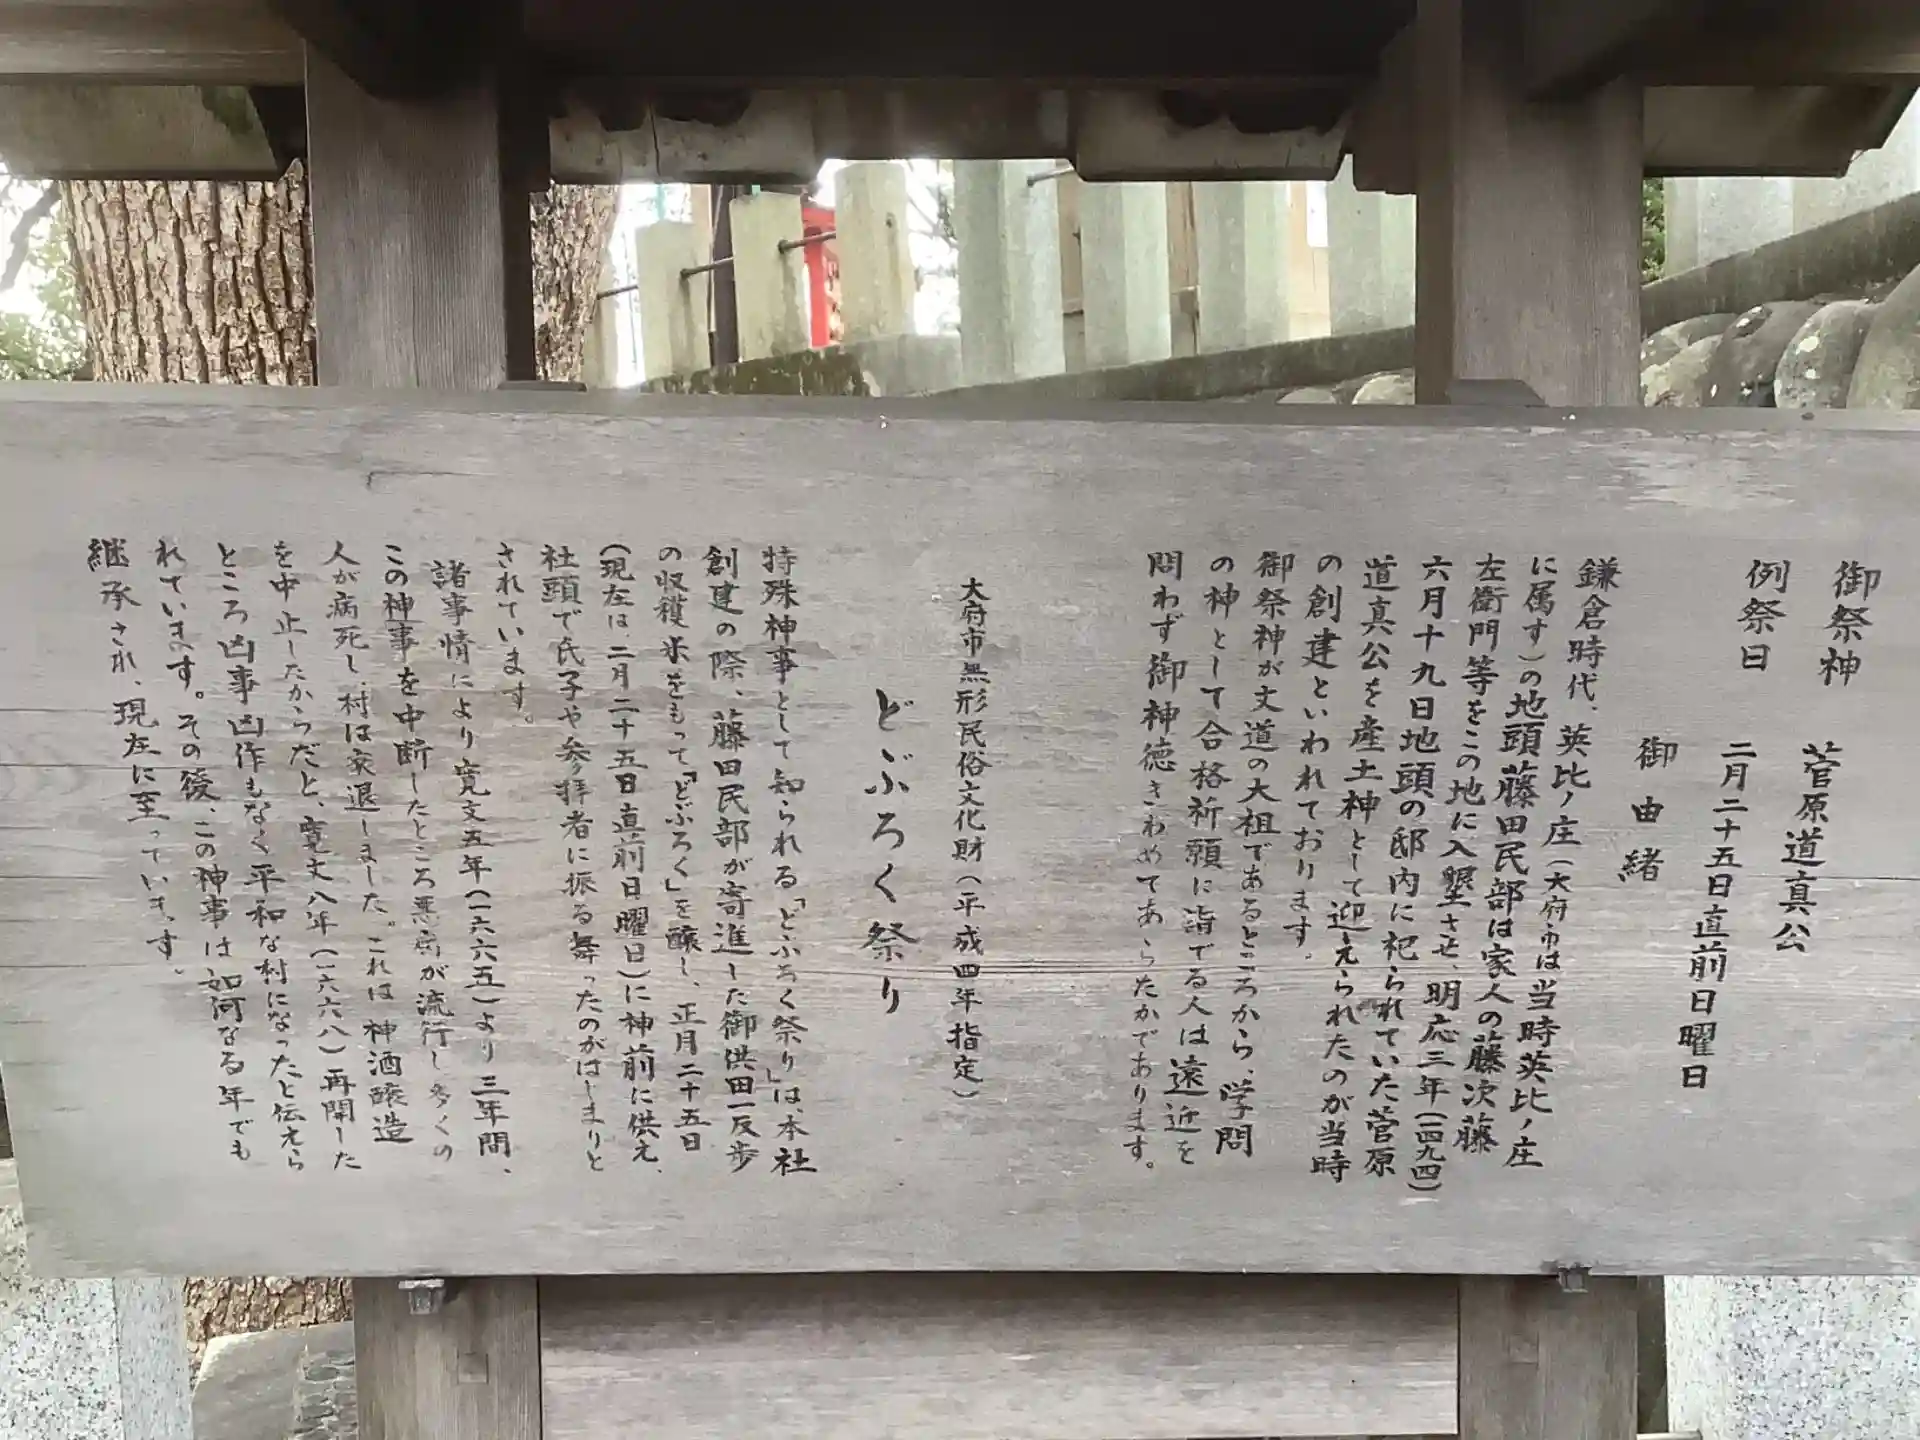 御祭神　菅原道真公
例祭日　二月二十五日直前日曜日
御由緒
鎌倉時代、英比ノ庄（大府市は当時英比ノ庄
に属す）の地頭藤田民部は家人の藤次藤
左衛門等をこの地に入墾させ、明応三年（一四九四）
六月十九日地頭の邸内に祀られていた菅原
道真公を産土神として迎えられたのが当時
の創建といわれております。
御祭神が文道の大祖であるところから、学問
の神として合格祈願に詣でる人は遠近を
問わず御神徳きわめてあらたかであります。
大府市無形民俗文化財（平成四年指定）
どぶろく祭り
特殊神事として知られる「どぶろく祭り」は、本社
創建の際、藤田民部が寄進した御供田一反歩
の収穫米をもって「どぶろく」を醸し、正月二十五日
（現在は、二月二十五日直前日曜日）に神前に供え、
社頭で氏子や参拝者に振る舞ったのがはじまりと
されています。
諸事情により寛文五年（一六六五）より三年間、
この神事を中断したところ悪病が流行し多くの
人が病死し、村は衰退しました。これは神酒醸造
を中止したからだと、寛文八年（一六六八）再開した
ところ凶事凶作もなく平和な村になったと伝えら
れています。その後、この神事は如何なる年でも
継承され、現在に至っています。